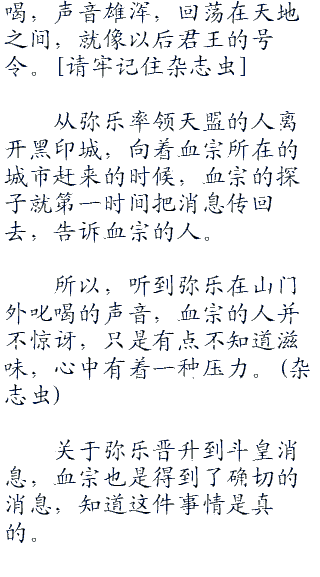 喝，声音雄浑，回荡在天地
之间，就像以后君王的号
令。[请牢记住杂志虫]
从弥乐率领天盟的人离
开黑印城，向着血宗所在的
城市赶来的时候，血宗的探
子就第一时间把消息传回
去，告诉血宗的人。
所以，听到弥乐在山门
外叱喝的声音，血宗的人并
不惊讶，只是有点不知道滋
味，心中有着一种压力。(杂
志虫)
关于弥乐晋升到斗皇消
息，血宗也是得到了确切的
消息，知道这件事情是真
的。